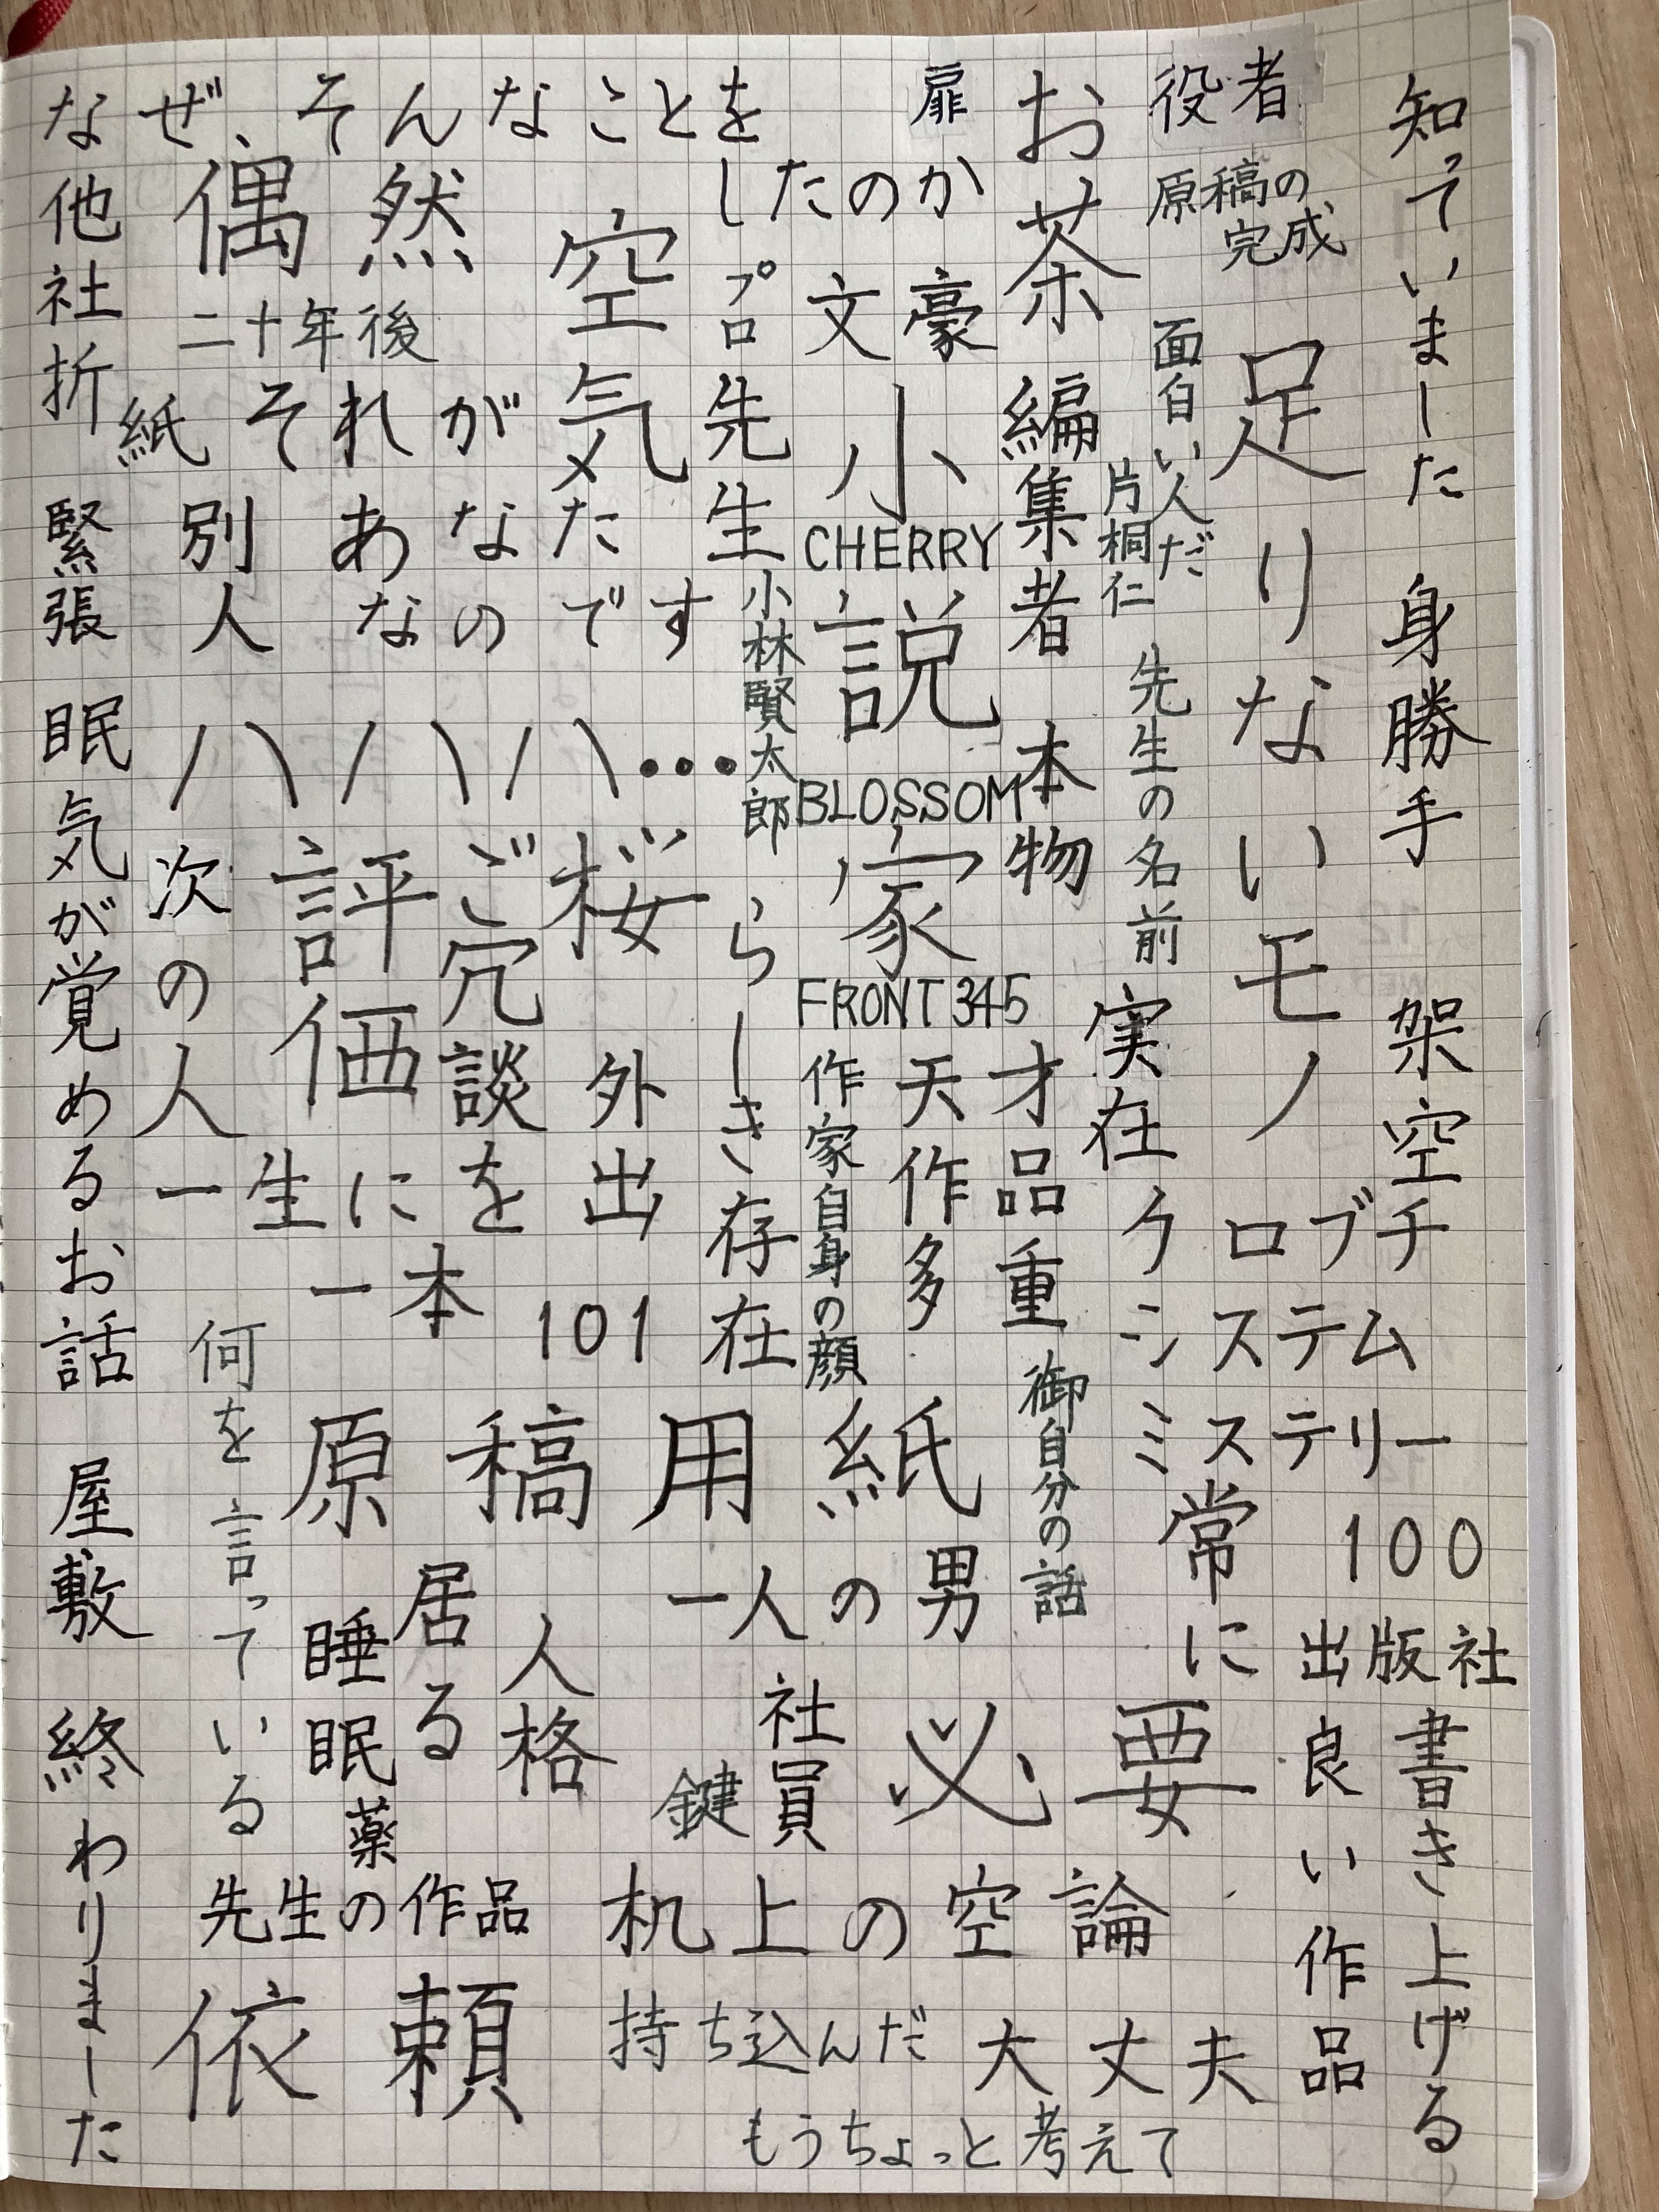 知っていました
身勝手
架空
書き上げる
役者
原稿の
完成
足りないモノ
面白い人だ
片桐仁
先生の名前
実在
クロブチ
システム
ミステリー
100
常に
出版社
良い作品
お茶
編集者
本物
天才
作品
多重
御自分の話
扉
なぜ、そんなことを
したのか
文豪
小説家
CHERRY
BLOSSOM
FRONT 345
作家自身の顔
プロ
先生
小林賢太郎
らしき存在
空気
偶然
二十年後
それが
あなた
なのです
別人
ハハハ・・・
桜
ご冗談を
評価
外出
101
次の人
一生に
一本
原稿用紙
一人の男
必要
社員
鍵
人格
居る
睡眠薬
何を言っている
先生の作品
机上の空論
依頼
持ち込んだ
大丈夫
もうちょっと考えて
他社
折紙
緊張
眠気が覚めるお話
屋敷
終わりました